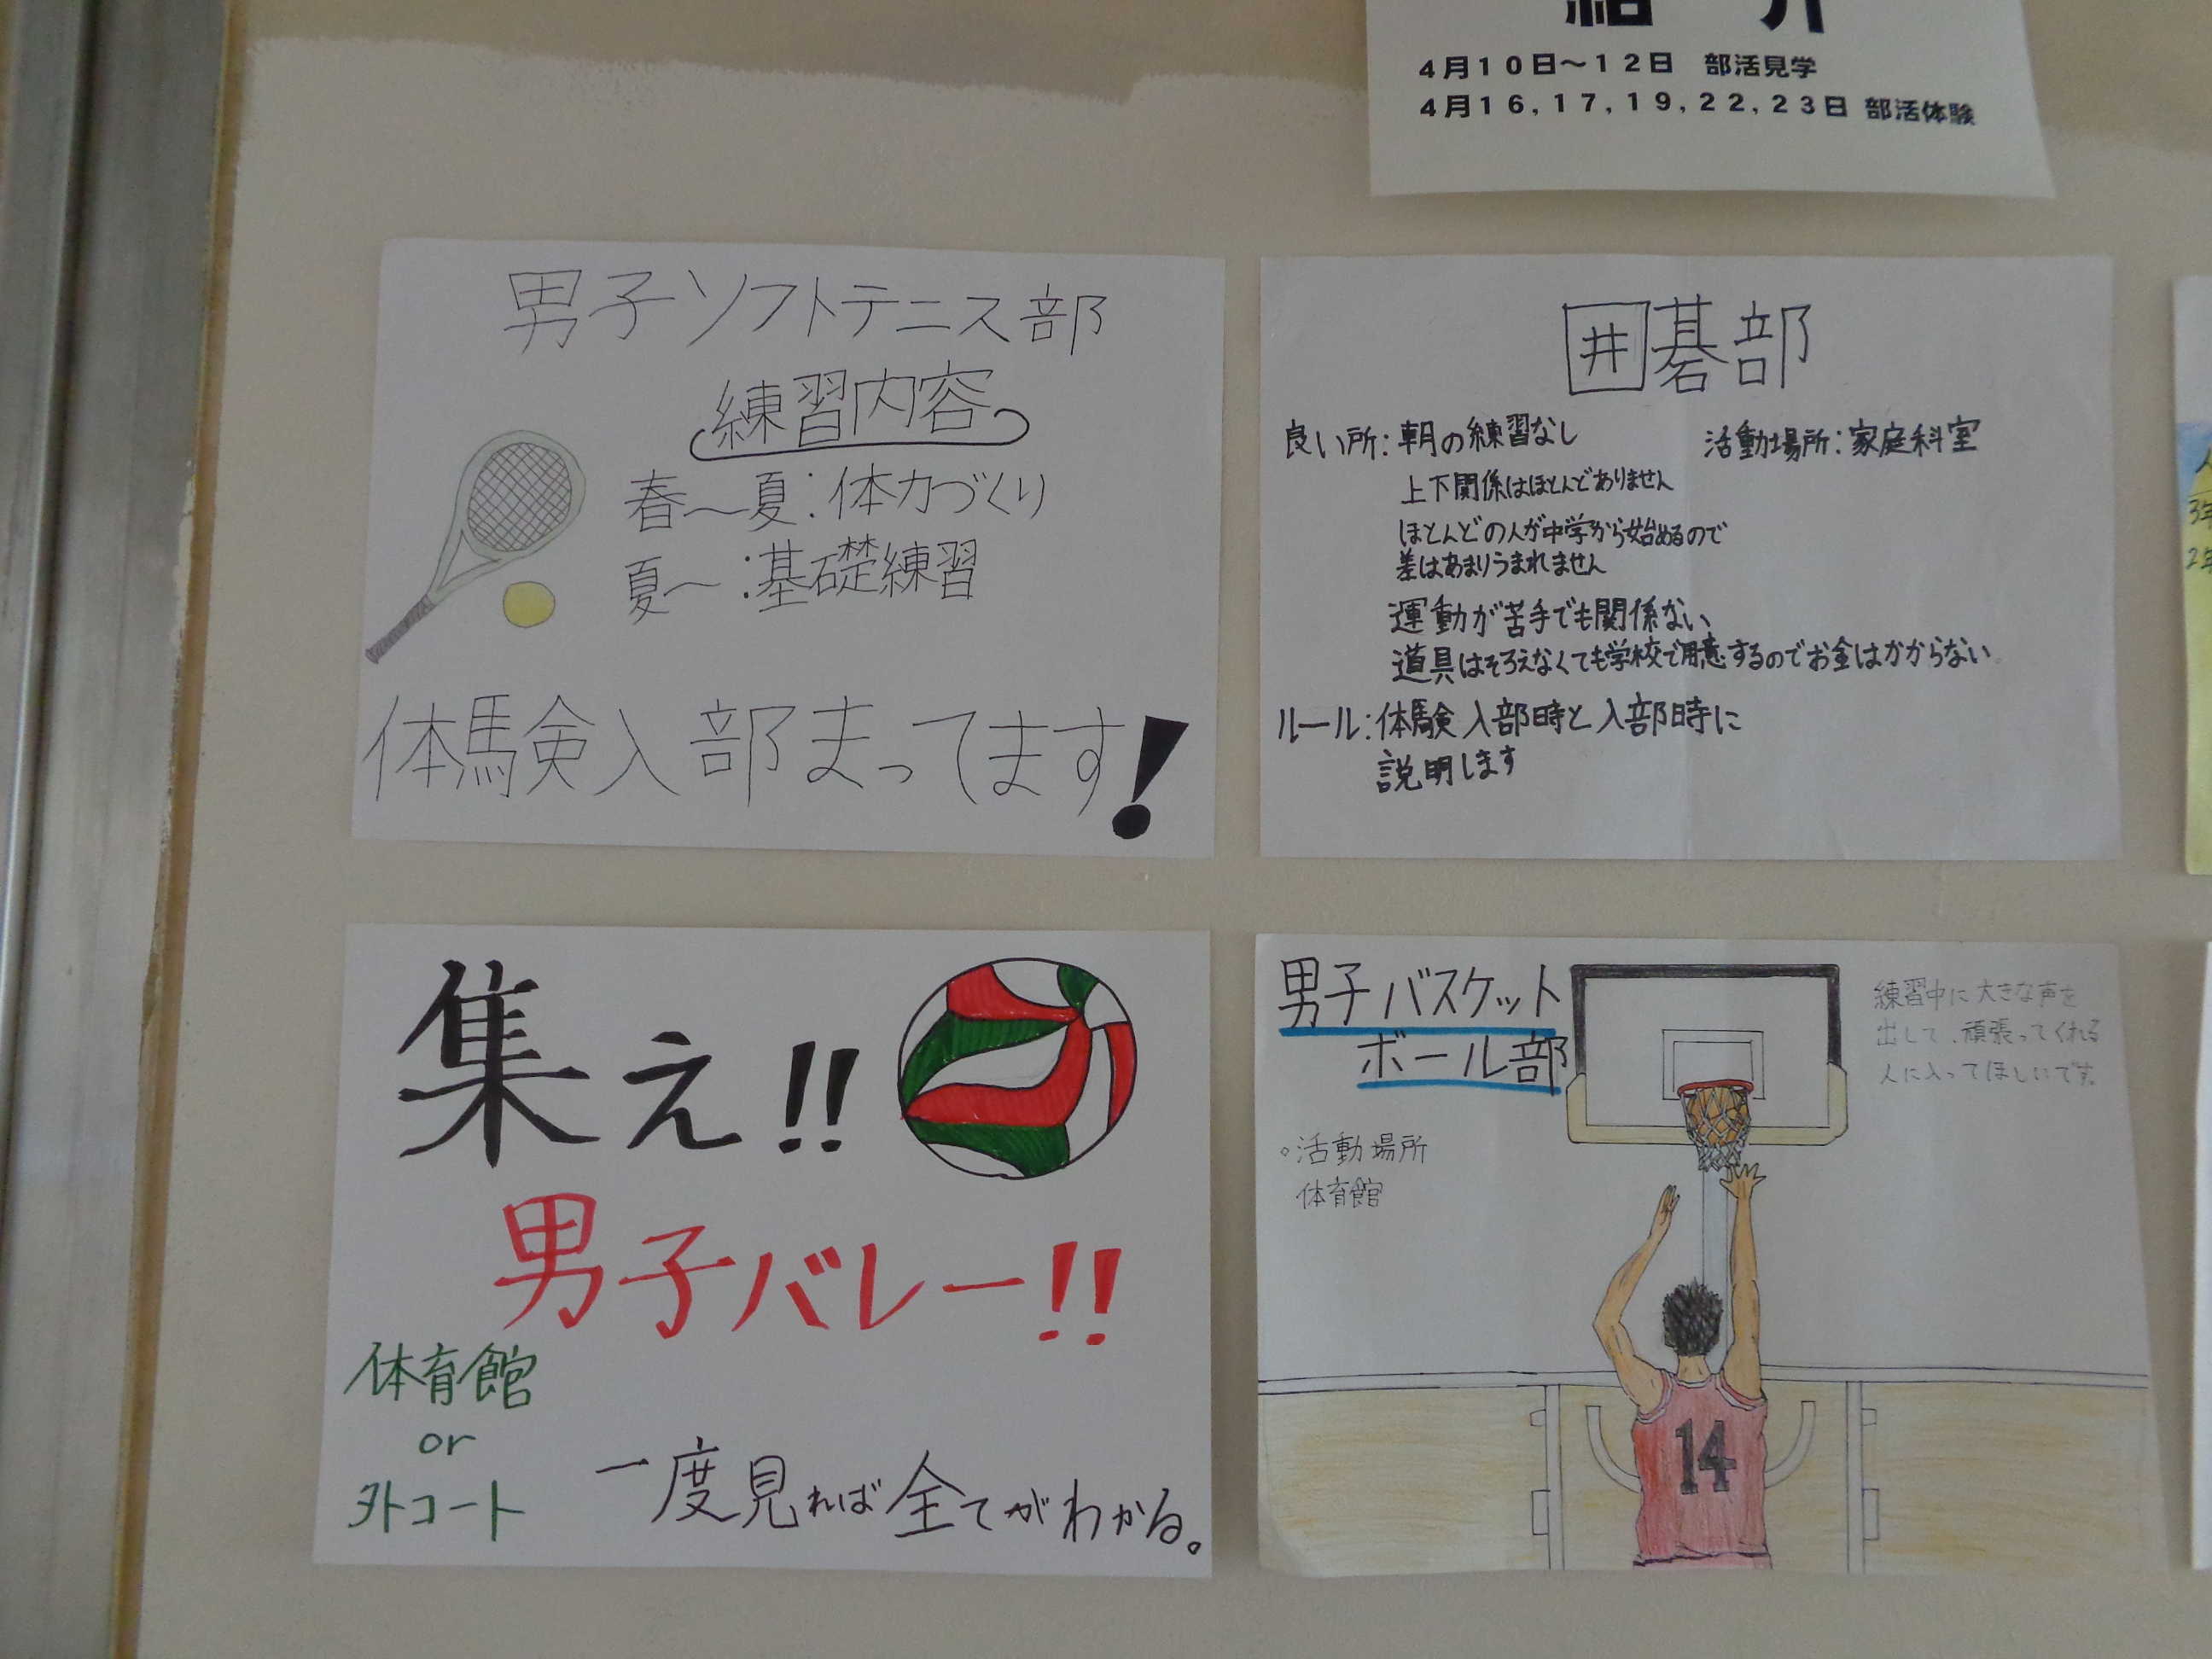 紹介
4月10日～12日 部活見学
4月16,17,19,22,23日 部活体験
男子ソフトテニス部
練習内容
春～夏:体力づくり
夏～:基礎練習
体験入部まってます!
囲碁部
良い所:朝の練習なし
活動場所:家庭科室
上下関係はほとんどありません
ほとんどの人が中学から始めるので
差はあまりうまれません
運動が苦手でも関係ない
道具はそろえなくても学校で用意するのでお金はかからない
ルール:体験入部時と入部時に
説明します
集え!!
男子バレー!!
体育館
or
外コート
一度見れば全てがわかる。
男子バスケット
ボール部
練習中に大きな声を
出して、頑張ってくれる
人に入ってほしいです。
・活動場所
体育館
14
3年
2年